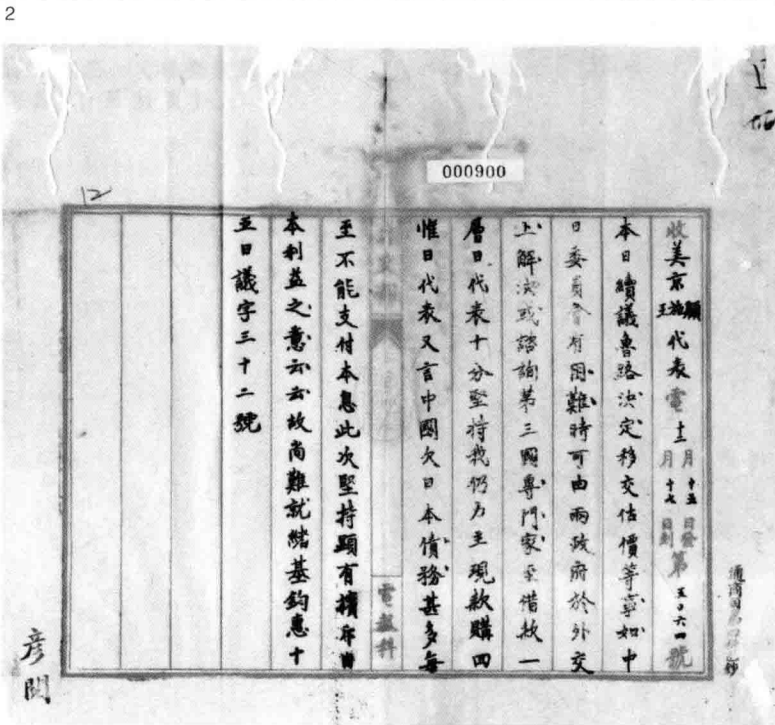 2
000900
12
收美京顧施王代表電 十二月十五日發 十二月十七日到 第五〇六四號
本日續議魯路決定移交估價等事如中
日委員會有困難時可由兩政府於外交
上解決或諮詢第三國專門家至借款一
層日代表十分堅持我仍力主現款贖回
惟日代表又言中國欠日本債務甚多每
電報科
至不能支付本息此次堅持顯有擴充日
本利益之意云云故尚難就緒基鈞惠十
五日議字三十二號
彥閱